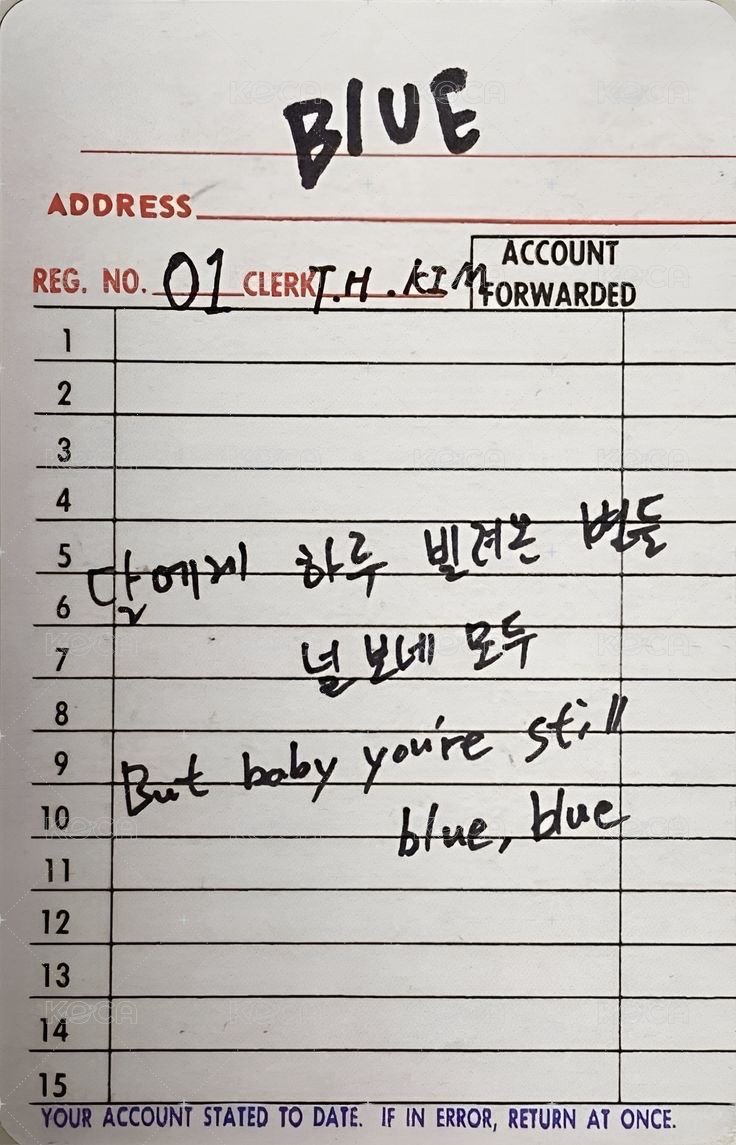 BlUE
ADDRESS
REG. NO. 01 CLERK T.H. KIM ACCOUNT FORWARDED
1
2
3
4
5 달에게 하루 빌려온 별들
6
7 널 보네 모두
8
9 But baby you're still
10 blue, blue
11
12
13
14
15
YOUR ACCOUNT STATED TO DATE. IF IN ERROR, RETURN AT ONCE.
KOCA